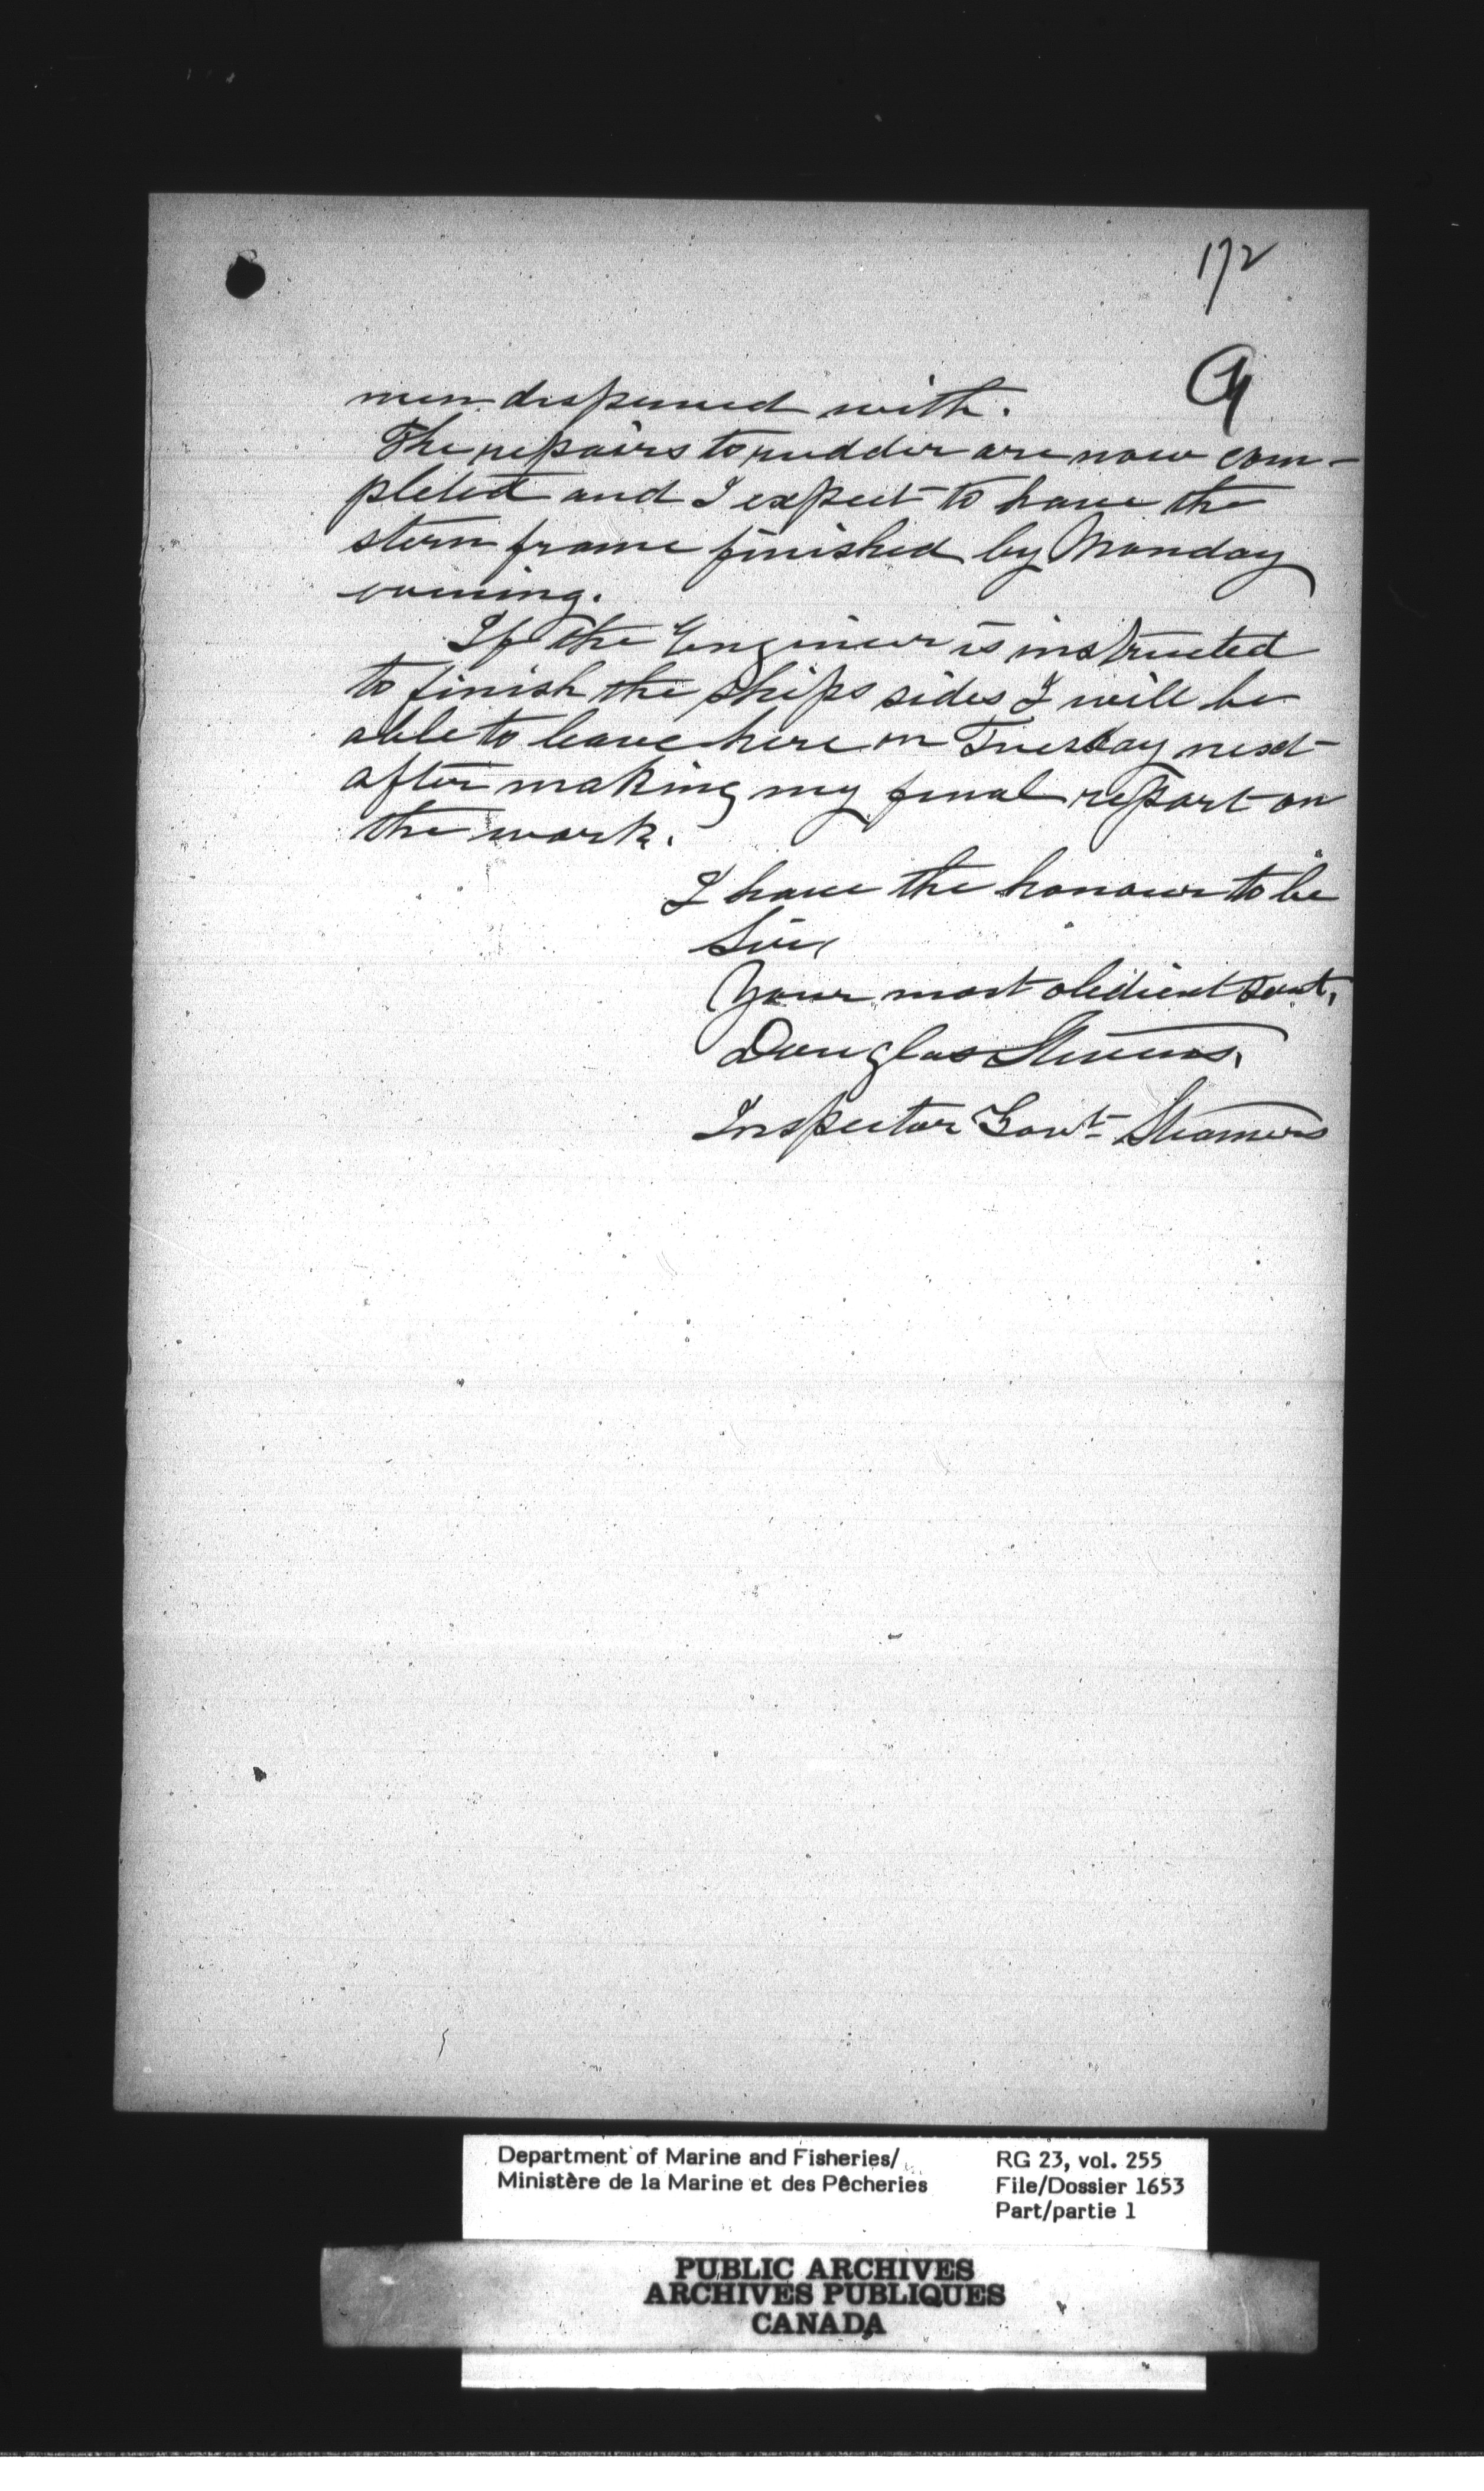 172
men dispensed with.
The repairs to rudder are now com-
pleted and I expect to have the
stern frame finished by Monday
evening.
If the Engineer is instructed
to finish the ships sides I will be
able to leave here on Tuesday next
after making my final report on
the work.
I have the honour to be
Sir,
Your most obedient Servt,
Douglas Stevens,
Inspector Govt Steamers
Department of Marine and Fisheries/
Ministère de la Marine et des Pêcheries
RG 23, vol. 255
File/Dossier 1653
Part/partie 1
PUBLIC ARCHIVES
ARCHIVES PUBLIQUES
CANADA